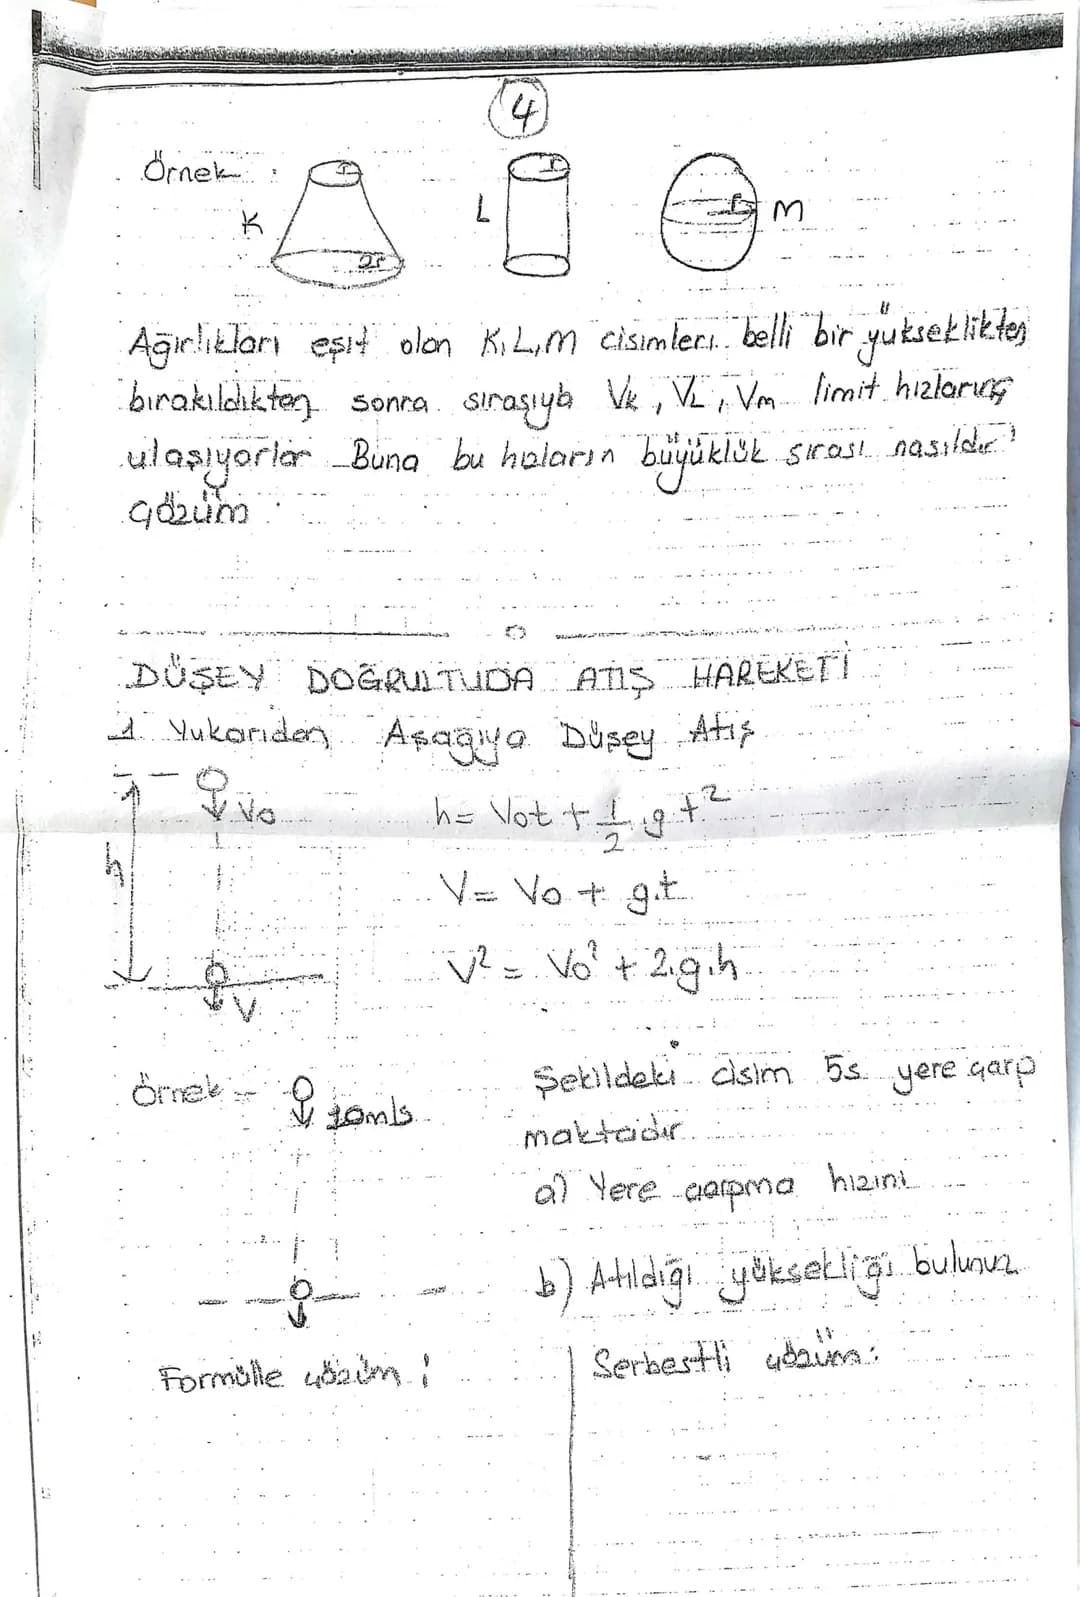 4
Örnek :
K
r
2r
L
r
r
M
Ağırlıkları eşit olan K,L,M cisimleri belli bir yükseklikten
bırakıldıktan sonra sırasıyla Vk, VL, Vm limit hızlarına
ulaşıyorlar Buna bu hızların büyüklük sırası nasıldır?
Çözüm :
DÜŞEY DOĞRULTUDA ATIŞ HAREKETİ
1. Yukarıdan Aşağıya Düşey Atış
Vo
h
V
h = Vot + 1/2 . g t²
V = Vo + g.t
V² = Vo² + 2.g.h
Örnek -
Şekildeki cisim 5s yere çarp
maktadır
a) Yere çarpma hızını
b) Atıldığı yüksekliği bulunuz
Formülle çözüm :
Serbestli çözüm :